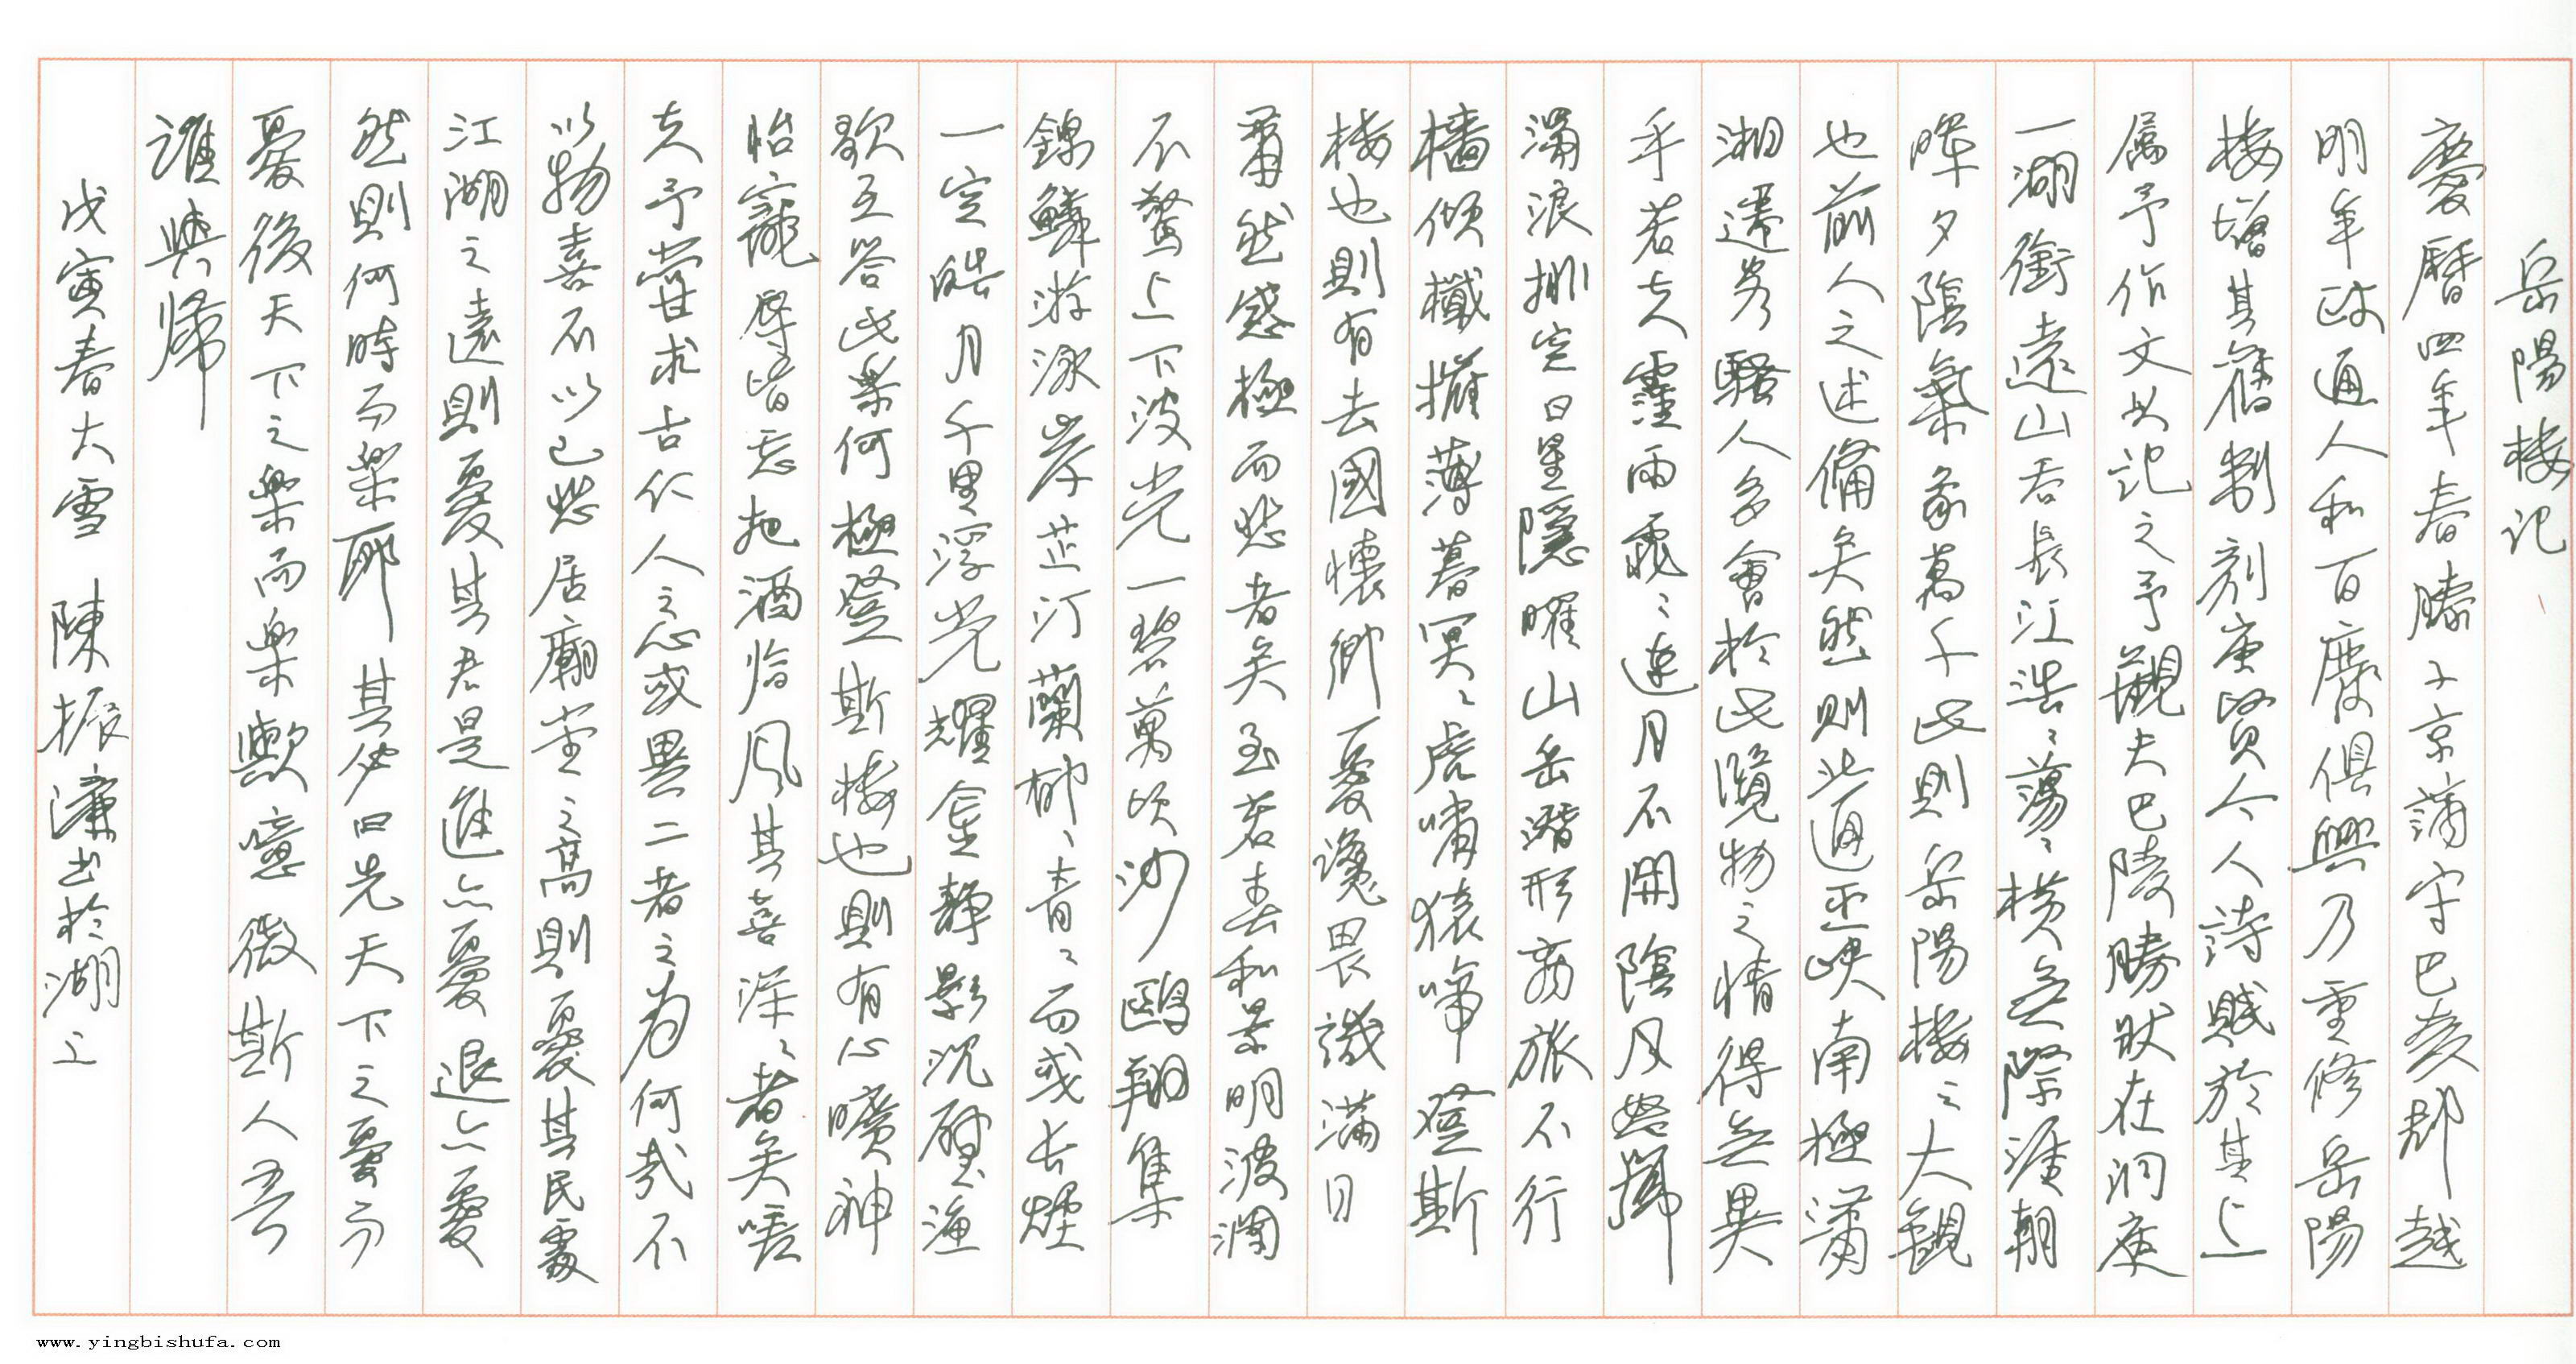 岳陽樓記
慶曆四年春滕子京謫守巴陵郡越
明年政通人和百廢俱興乃重修岳陽
樓增其舊制刻唐賢今人詩賦於其上
属予作文以記之予觀夫巴陵勝狀在洞庭
一湖銜遠山吞長江浩〻蕩〻橫無際涯朝
暉夕陰氣象萬千此則岳陽樓之大觀
也前人之述備矣然則北通巫峽南極瀟
湘遷客騷人多會於此覽物之情得無異
乎若夫霪雨霏〻連月不開陰風怒號
濁浪排空日星隱曜山岳潛形商旅不行
檣傾檝摧薄暮冥〻虎嘯猿啼登斯
樓也則有去國懷鄉憂讒畏譏滿目
蕭然感極而悲者矣至若春和景明波瀾
不驚上下波光一碧萬頃沙鷗翔集
錦鱗游泳岸芷汀蘭郁〻青〻而或長煙
一空皓月千里浮光耀金靜影沉璧漁
歌互答此樂何極登斯樓也則有心曠神
怡寵辱皆忘把酒臨風其喜洋〻者矣嗟
夫予嘗求古仁人之心或異二者之為何哉不
以物喜不以己悲居廟堂之高則憂其民處
江湖之遠則憂其君是進亦憂退亦憂
然則何時而樂耶其必曰先天下之憂而
憂後天下之樂而樂歟噫微斯人吾
誰與歸
戊寅春大雪 陳振濂書於湖上
www.yingbishufa.com